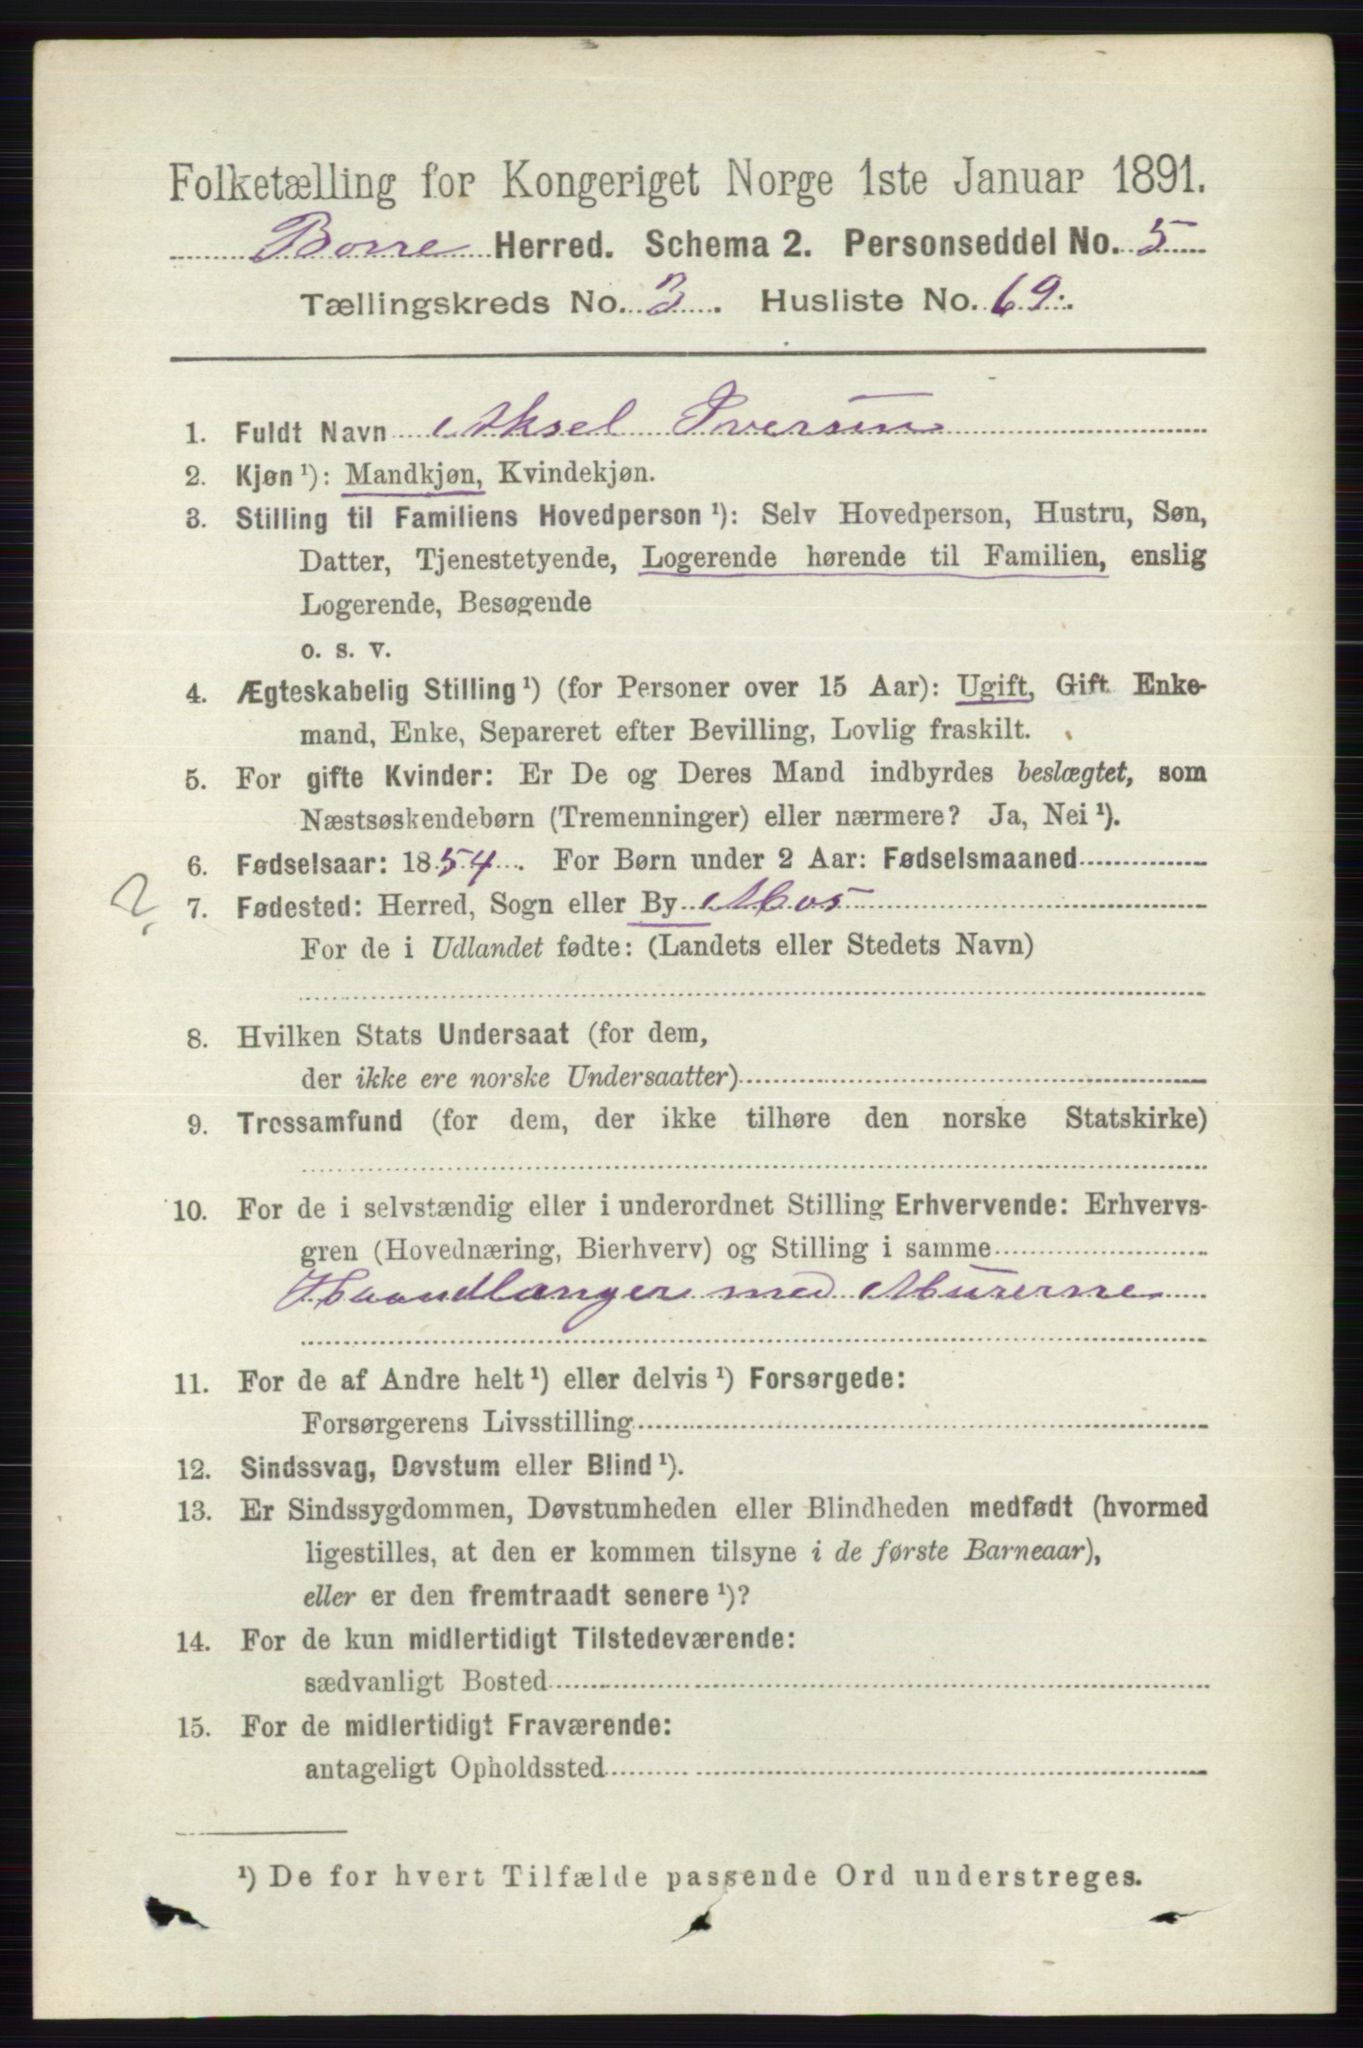 Folketælling for Kongeriget Norge 1ste Januar 1891.
Borre Herred. Schema 2. Personseddel No. 5
Tællingskreds No. 3. Husliste No. 69.
1. Fuldt Navn Aksel Iversen
2. Kjøn ¹): Mandkjøn, Kvindekjøn.
3. Stilling til Familiens Hovedperson ¹): Selv Hovedperson, Hustru, Søn,
Datter, Tjenestetyende, Logerende hørende til Familien, enslig
Logerende, Besøgende
o. s. v.
4. Ægteskabelig Stilling ¹) (for Personer over 15 Aar): Ugift, Gift Enke-
mand, Enke, Separeret efter Bevilling, Lovlig fraskilt.
5. For gifte Kvinder: Er De og Deres Mand indbyrdes beslægtet, som
Næstsøskendebørn (Tremenninger) eller nærmere? Ja, Nei ¹).
6. Fødselsaar: 1854. For Børn under 2 Aar: Fødselsmaaned
?
7. Fødested: Herred, Sogn eller By Mos
For de i Udlandet fødte: (Landets eller Stedets Navn)
8. Hvilken Stats Undersaat (for dem,
der ikke ere norske Undersaatter)
9. Trossamfund (for dem, der ikke tilhøre den norske Statskirke)
10. For de i selvstændig eller i underordnet Stilling Erhvervende: Erhvervs-
gren (Hovednæring, Bierhverv) og Stilling i samme
Haandlanger med Murerne
11. For de af Andre helt ¹) eller delvis ¹) Forsørgede:
Forsørgerens Livsstilling
12. Sindssvag, Døvstum eller Blind ¹).
13. Er Sindssygdommen, Døvstumheden eller Blindheden medfødt (hvormed
ligestilles, at den er kommen tilsyne i de første Barneaar),
eller er den fremtraadt senere ¹)?
14. For de kun midlertidigt Tilstedeværende:
sædvanligt Bosted
15. For de midlertidigt Fraværende:
antageligt Opholdssted
¹) De for hvert Tilfælde passende Ord understreges.